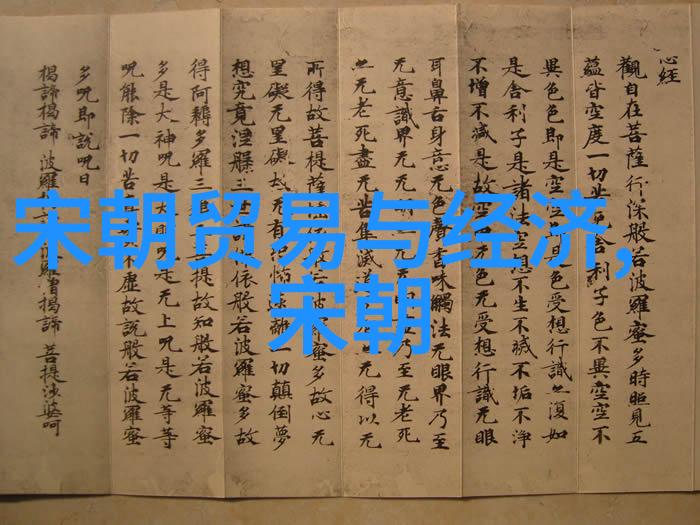 宋朝贸易与经济,
宋朝
心经
觀自在菩薩行深般若波羅蜜多時照見五
蘊皆空度一切苦舍利子色不異空空不
異色色即是空空是色受想行識亦復如
是舍利子是諸法空想不生不滅不垢不淨
不增不減是故空中无色无受想行識无眼
耳鼻舌身意无色聲香味觸法无眼界乃至
无意識界无无明乃至无老死
亦无老死盡无苦集滅无得以无
所得故菩提薩依波羅蜜多故心无
罣礙无罣礙故无有恐怖遠離一切顛倒夢
想究竟涅槃三世依般若波羅蜜多故
得阿耨多羅三菩提故知般若波羅蜜
多是大神呪是大明呪是无上呪是无等等
呪能除一切苦不虛故說般若波羅蜜
多呪即說呪曰
揭諦揭諦 波羅波羅僧揭諦 菩提沙婆呵